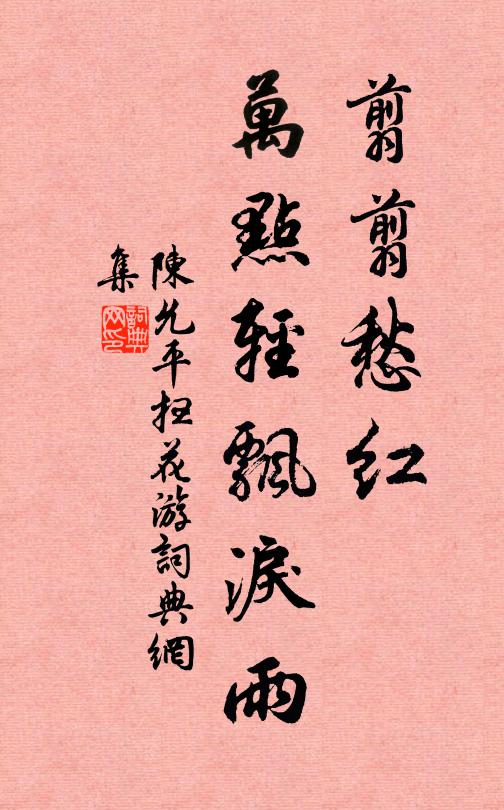 翦翦愁红
萬點輕飄淚雨
陳允平扫花游詞典網
集
詞典
网印